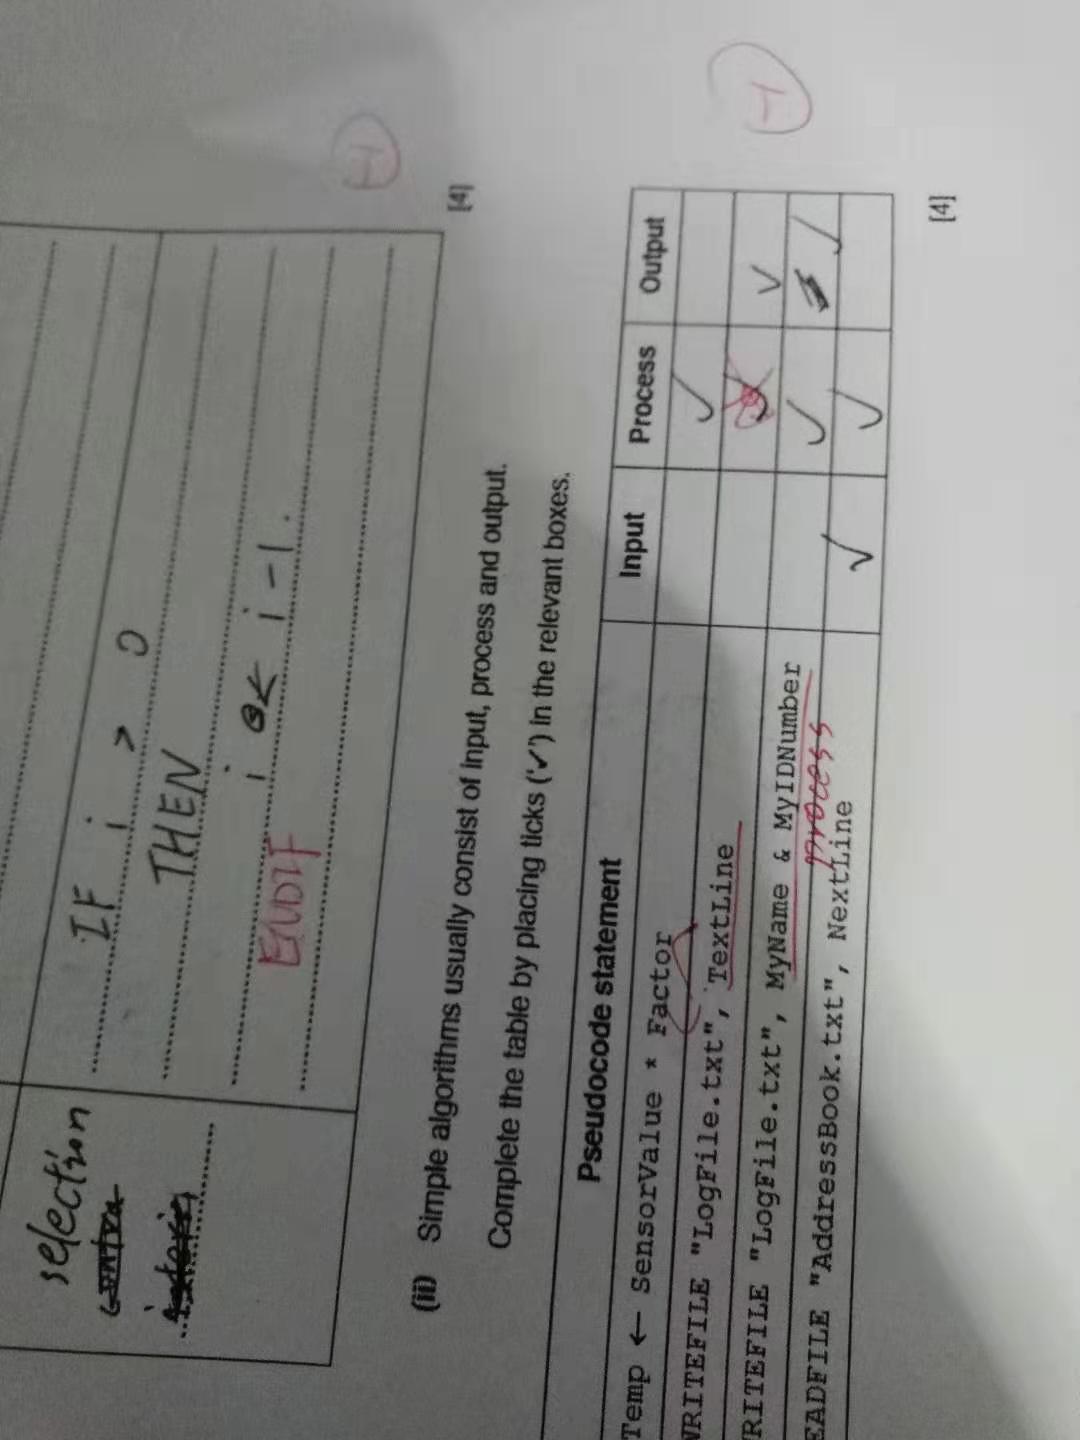 selection
IF i > 0
THEN
i ← i - 1.
ENDIF
[4]
(ii) Simple algorithms usually consist of input, process and output.
Complete the table by placing ticks ('✓') in the relevant boxes.
Pseudocode statement Input Process Output
Temp ← SensorValue * Factor ✓
WRITEFILE "LogFile.txt", TextLine ✓
RITEFILE "LogFile.txt", MyName & MyIDNumber ✓ ✓
process
EADFILE "AddressBook.txt", NextLine ✓ ✓
[4]